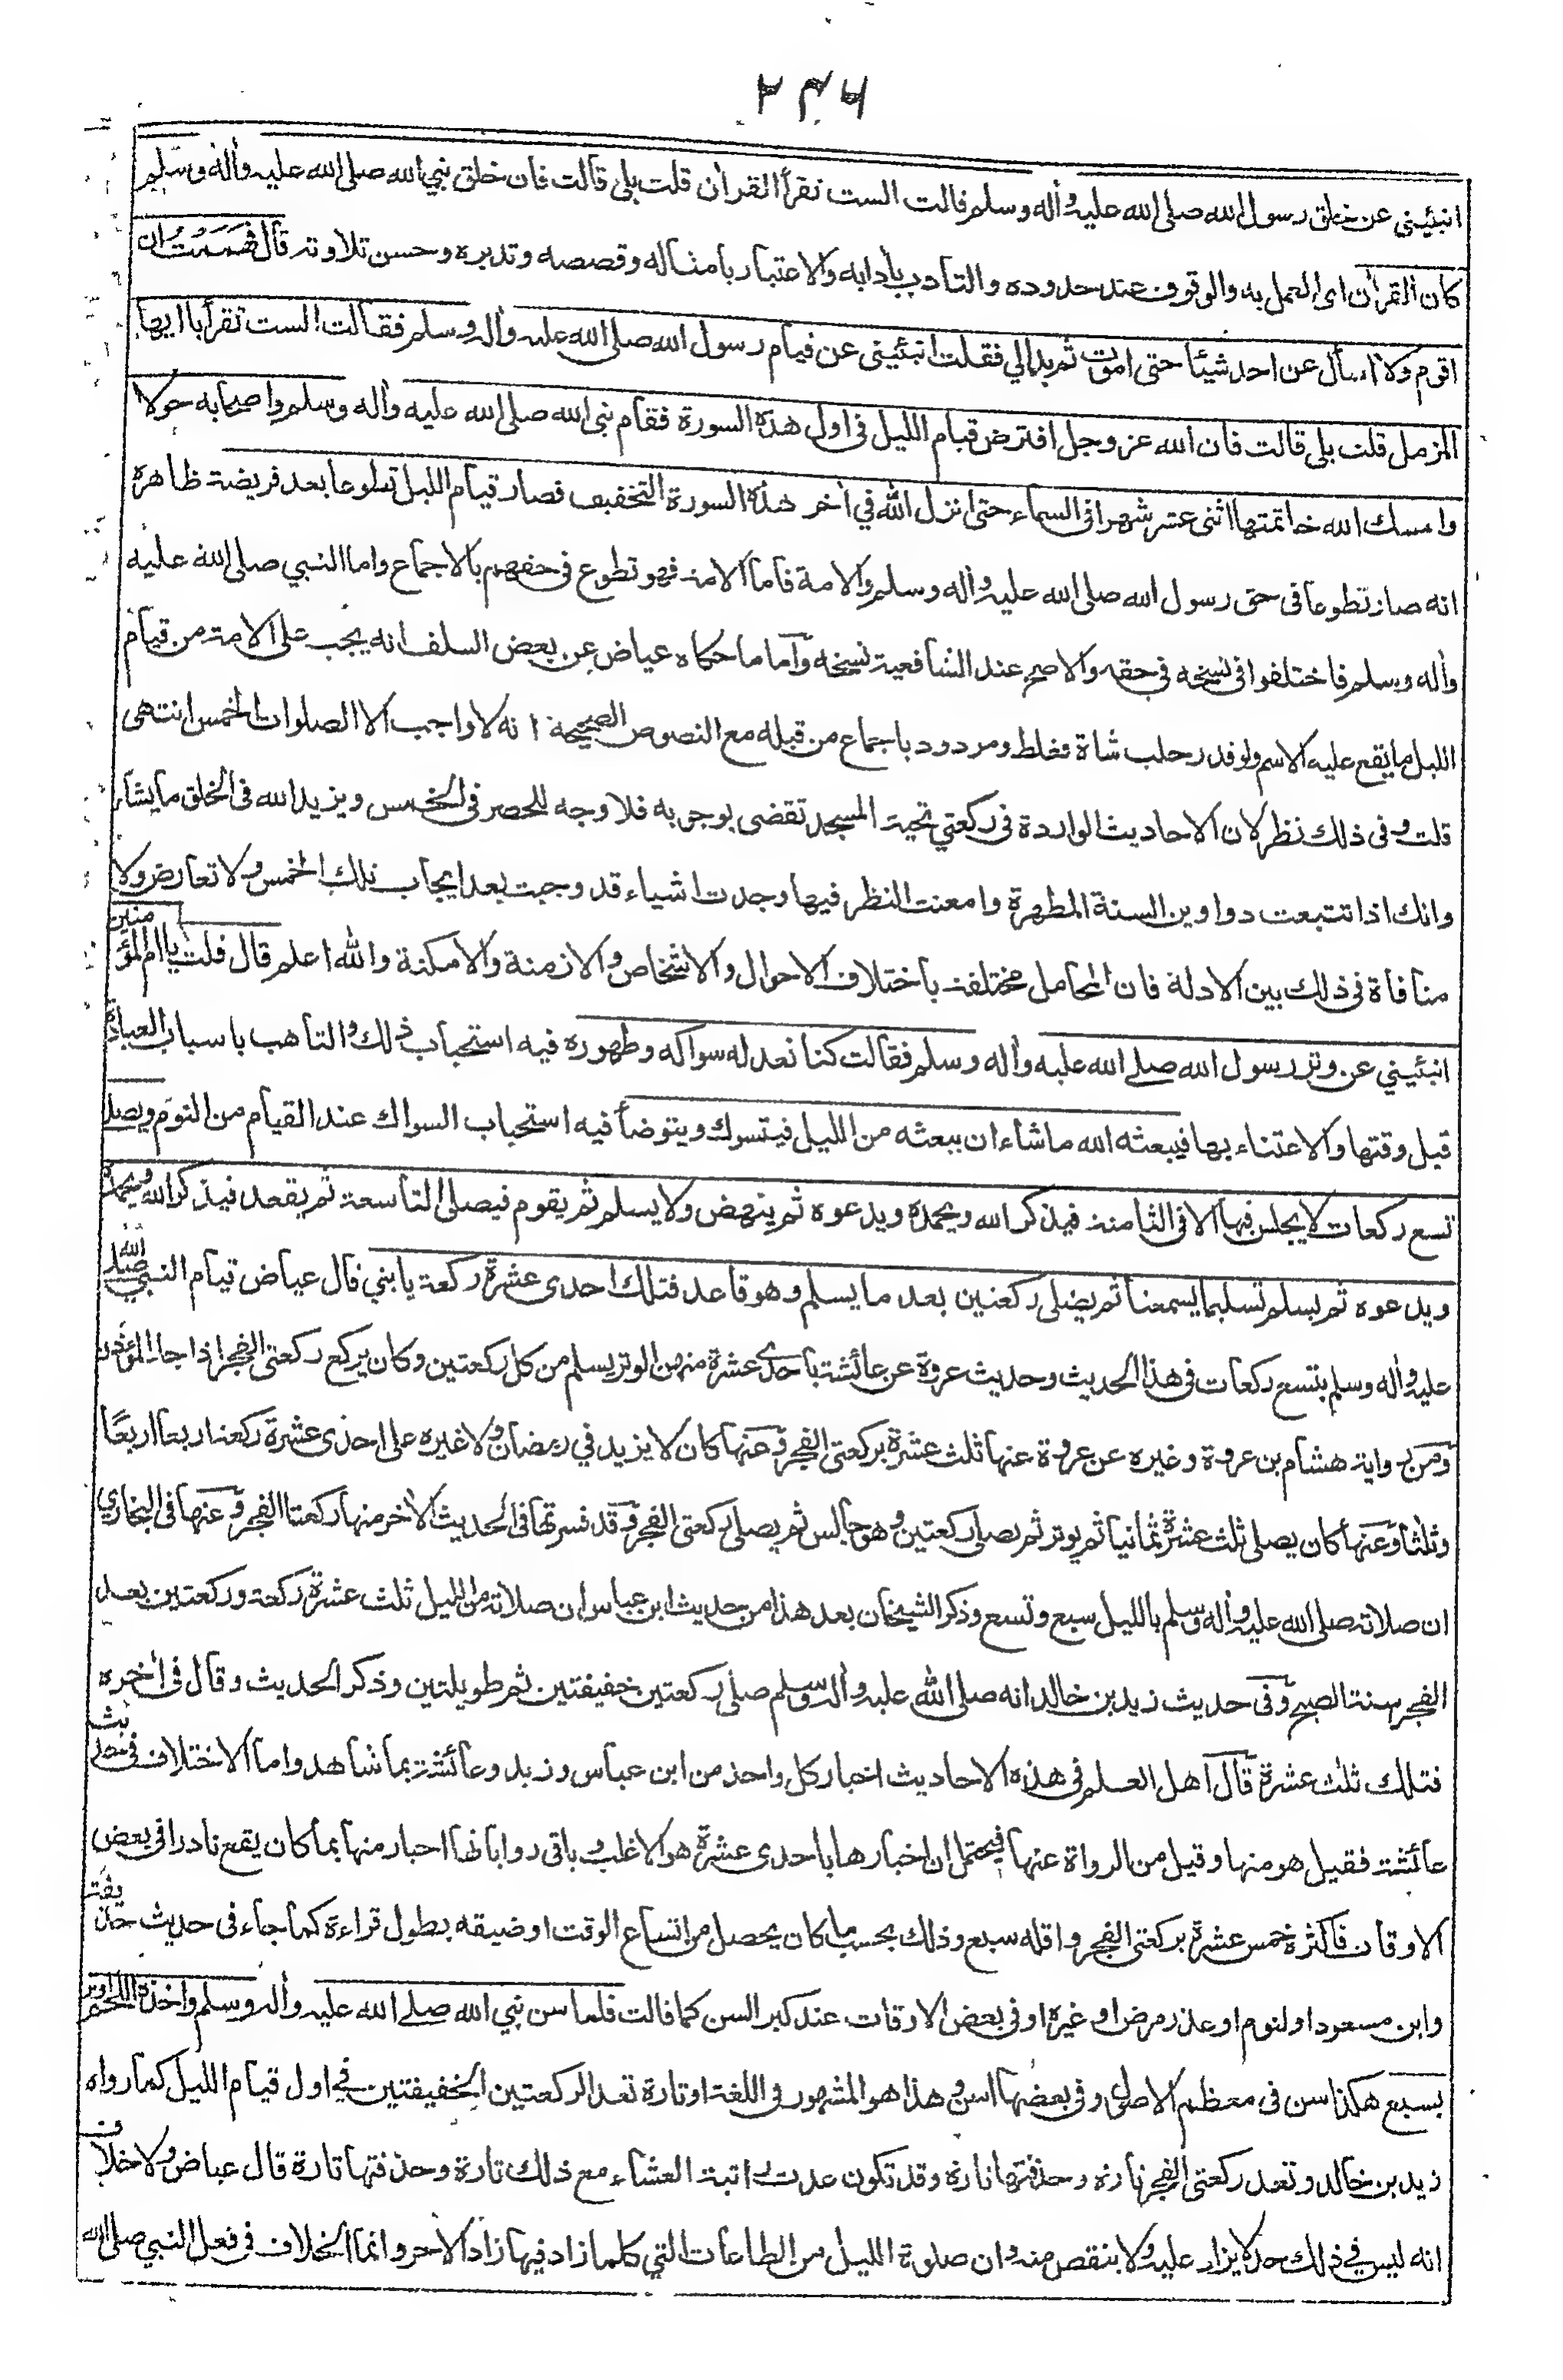 ٢٤٦
انبئيني عن خلق رسول الله صلى الله عليه وأله وسلم قالت الست تقرأ القرأن قلت بلى قالت فان خلق نبي الله صلى الله عليه وأله وسلم
كان القرأن اى العمل به والوقوف عند حدوده والتادب بأدابه والاعتبار بامثاله وقصصه وتدبره وحسن تلاوته قال فهممت ان
اقوم ولا اسأل عن احد شيئا حتى اموت ثم بدا لي فقلت انبئيني عن قيام رسول الله صلى الله عليه وأله وسلم فقالت الست تقرأ باايها
المزمل قلت بلى قالت فان الله عز وجل افترض قيام الليل فى اول هذه السورة فقام نبى الله صلى الله عليه وأله وسلم واصحابه حولا
وامسك الله خاتمتها اثنى عشر شهرا فى السماء حتى انزل الله في أخر هذه السورة التخفيف فصار قيام الليل تطوعا بعد فريضة ظاهره
انه صار تطوعا فى حق رسول الله صلى الله عليه وأله وسلم والامة فاما الامة فهو تطوع فى حقهم بالاجماع واما النبي صلى الله عليه
وأله وسلم فاختلفوا فى نسخه في حقه والاصح عند الشافعية نسخه وأما ما حكاه عياض عن بعض السلف انه يجب على الامة من قيام
الليل ما يقع عليه الاسم ولو قدر حلب شاة فغلط ومردود باجماع من قبله مع النصوص الصحيحة انه لا واجب الا الصلوات الخمس انتهى
قلت وفى ذلك نظر لان الاحاديث الواردة فى ركعتي تحية المسجد تقضى بوجوبه فلا وجه للحصر فى الخمس ويزيد الله فى الخلق ما يشاء
وانك اذا تتبعت دواوين السنة المطهرة وامعنت النظر فيها وجدت اشياء قد وجبت بعد ايجاب تلك الخمس ولا تعارض ولا
منافاة فى ذلك بين الادلة فان المحامل مختلفة باختلاف الاحوال والاشخاص والازمنة والامكنة والله اعلم قال قلت ياام المؤمنين
انبئيني عن وتر رسول الله صلى الله عليه وأله وسلم فقالت كنا نعد له سواكه وطهوره فيه استحباب ذلك والتأهب باسباب العبادة
قبل وقتها والاعتناء بها فيبعثه الله ما شاء ان يبعثه من الليل فيتسوك ويتوضأ فيه استحباب السواك عند القيام من النوم ويصلى
تسع ركعات لا يجلس فيها الا فى الثامنة فيذكر الله ويحمده ويدعوه ثم ينهض ولا يسلم ثم يقوم فيصلى التاسعة ثم يقعد فيذكر الله ويحمده
ويدعوه ثم يسلم تسليما يسمعنا ثم يصلى ركعتين بعد ما يسلم وهو قاعد فتلك احدى عشرة ركعة يا بني قال عياض قيام النبي صلى الله
عليه وأله وسلم بتسع ركعات فى هذا الحديث وحديث عروة عن عائشة باحدى عشرة منهن الوتر يسلم من كل ركعتين وكان يركع ركعتى الفجر اذا جاء المؤذن
ومن رواية هشام بن عروة وغيره عن عروة عنها ثلث عشرة بركعتى الفجر وعنها كان لا يزيد في رمضان ولا غيره على احدى عشرة ركعة اربعا اربعًا
وثلثا وعنها كان يصلى ثلث عشرة ثمانيا ثم يوتر ثم يصلى ركعتين وهو جالس ثم يصلى ركعتى الفجر وقد فسرتها فى الحديث الأخر منها ركعتا الفجر وعنها فى البخاري
ان صلاته صلى الله عليه وأله وسلم بالليل سبع وتسع وذكر الشيخان بعد هذا من حديث ابن عباس ان صلاته من الليل ثلث عشرة ركعة وركعتين بعد
الفجر سنة الصبح وفى حديث زيد بن خالد انه صلى الله عليه وأله وسلم صلى ركعتين خفيفتين ثم طويلتين وذكر الحديث وقال فى أخره
فتلك ثلث عشرة قال اهل العلم فى هذه الاحاديث اخبار كل واحد من ابن عباس وزيد وعائشة بما شاهد واما الاختلاف فى حديث
عائشة فقيل هو منها وقيل من الرواة عنها فيحتمل ان اخبارها باحدى عشرة هو الاغلب وباقى رواياتها اخبار منها بما كان يقع نادرا فى بعض
الاوقات فاكثره خمس عشرة بركعتى الفجر واقله سبع وذلك بحسب ما كان يحصل من اتساع الوقت او ضيقه بطول قراءة كما جاء فى حديث حذيفة
وابن مسعود او لنوم او عذر مرض او غيره او فى بعض الاوقات عند كبر السن كما قالت فلما سن نبي الله صلى الله عليه وأله وسلم واخذه اللحم اوتر
بسبع هكذا سن فى معظم الاصول وفى بعضها اسن وهذا هو المشهور فى اللغة او تارة تعد الركعتين الخفيفتين في اول قيام الليل كما رواه
زيد بن خالد وتعد ركعتى الفجر تارة وحذفتها تارة وقد تكون عدت راتبة العشاء مع ذلك تارة وحذفتها تارة قال عياض ولا خلاف
انه ليس في ذلك حد لا يزاد عليه ولا ينقص منه وان صلوة الليل من الطاعات التي كلما زاد فيها زاد الاجر وانما الخلاف فى فعل النبي صلى الله